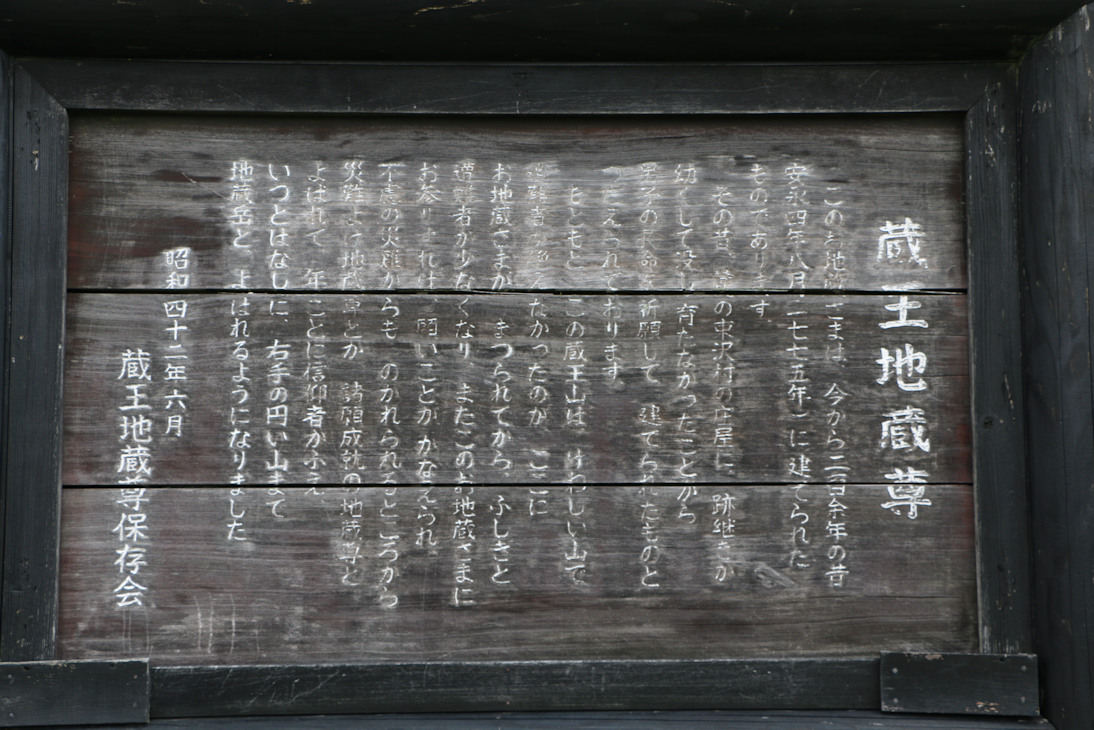 蔵王地蔵尊
このお地蔵さまは、今から二百余年の昔
安永四年八月(一七七五年)に建てられた
ものであります。
その昔、 の東沢村の庄屋に、跡継ぎが
幼くして没し、育たなかったことから
長命を祈願して、建てられたものと
つたえられております。
もともと、この蔵王山は、けわしい山で
遭難者が絶えなかったのが、ここに
お地蔵さまが、まつられてから、ふしぎと
遭難者が少なくなり、またこのお地蔵さまに
お参りすれば、願いごとが、かなえられ、
不慮の災難からも、のがれられるところから
災難よけ地蔵尊とか、諸願成就の地蔵尊と
よばれて、年ごとに信仰者がふえ
いつとはなしに、右手の円い山まで
地蔵岳と、よばれるようになりました
昭和四十二年六月
蔵王地蔵尊保存会